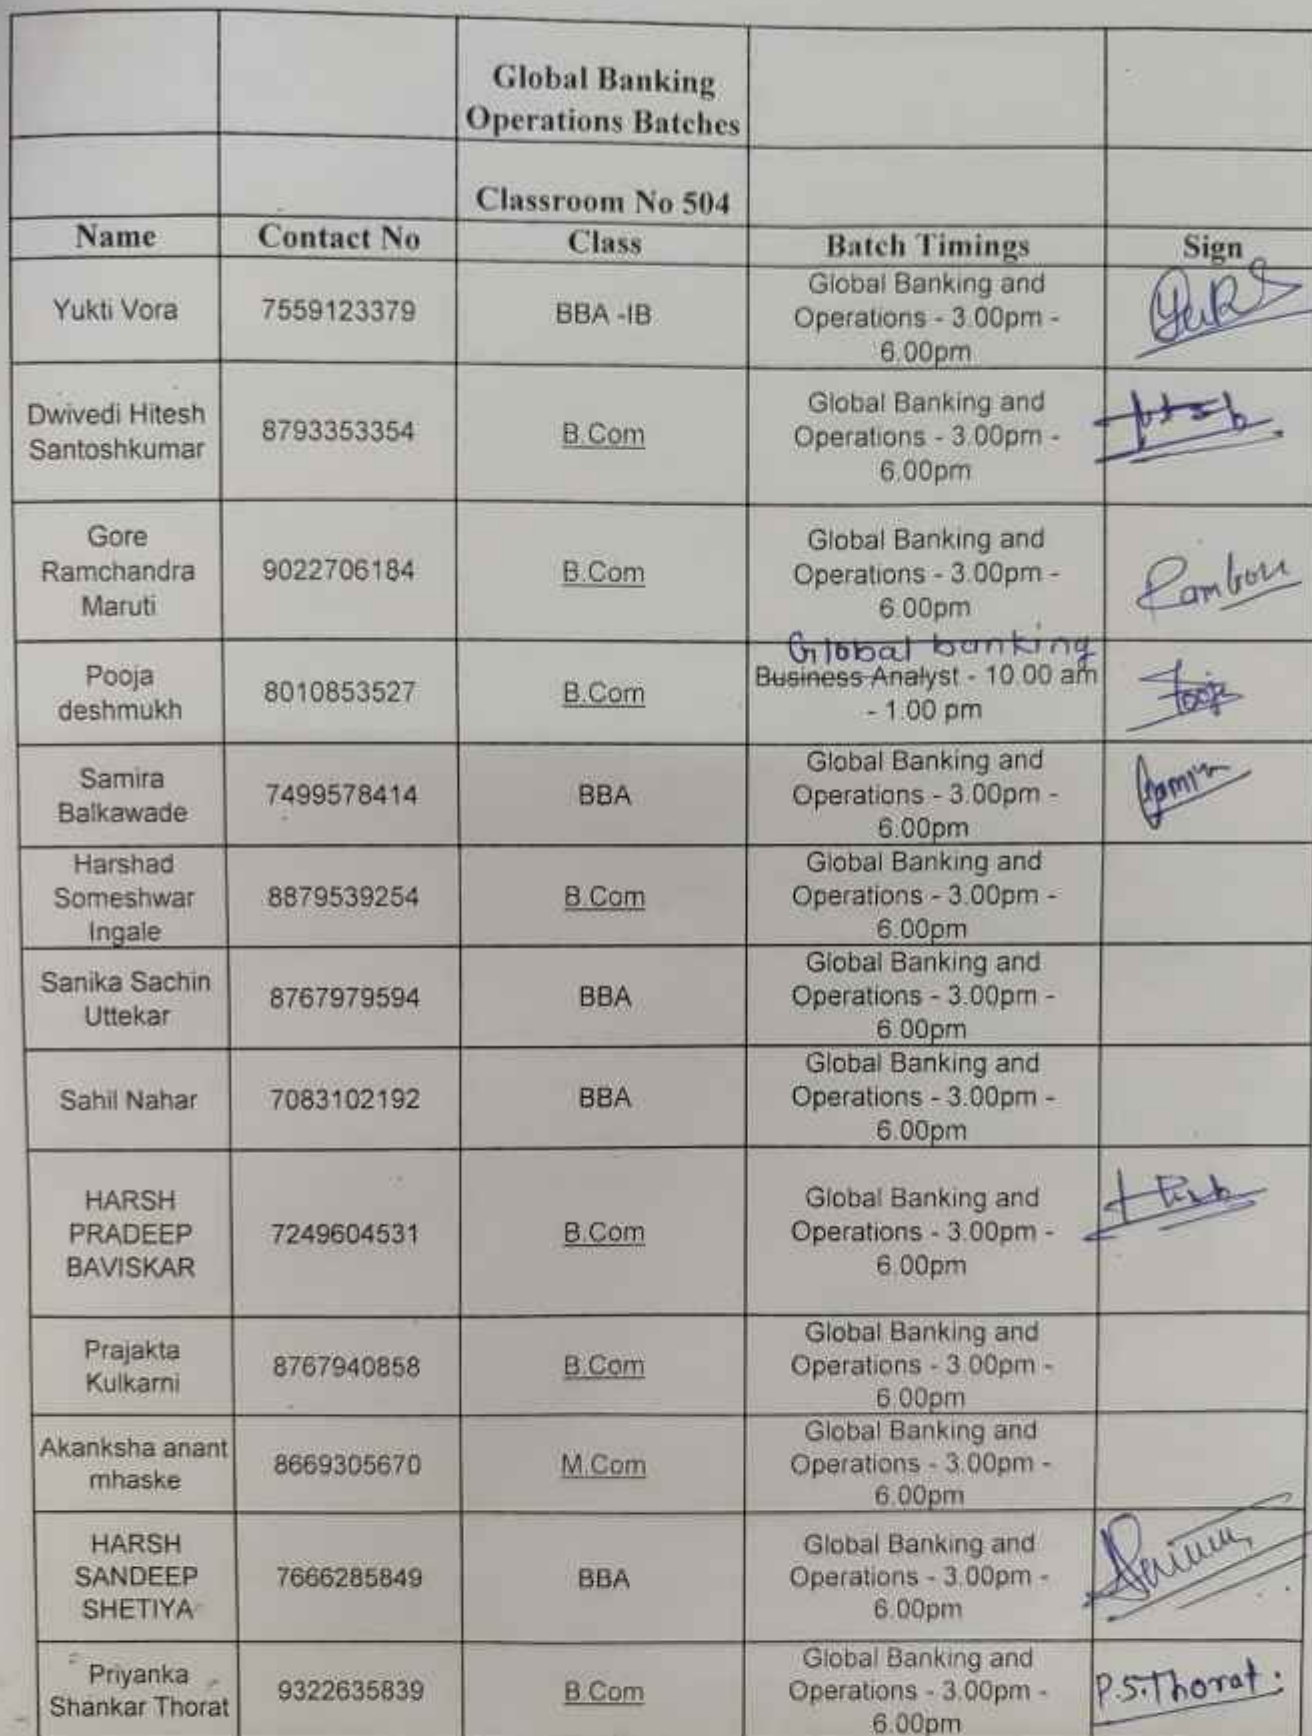 Global Banking
Operations Batches
Classroom No 504
Name Contact No Class Batch Timings Sign
Yukti Vora 7559123379 BBA -IB Global Banking and
Operations - 3.00pm -
6.00pm
Dwivedi Hitesh
Santoshkumar 8793353354 B.Com Global Banking and
Operations - 3.00pm -
6.00pm
Gore
Ramchandra
Maruti 9022706184 B.Com Global Banking and
Operations - 3.00pm -
6.00pm
Pooja
deshmukh 8010853527 B.Com Global banking
Business Analyst - 10.00 am
- 1.00 pm Pooja
Samira
Balkawade 7499578414 BBA Global Banking and
Operations - 3.00pm -
6.00pm
Harshad
Someshwar
Ingale 8879539254 B.Com Global Banking and
Operations - 3.00pm -
6.00pm
Sanika Sachin
Uttekar 8767979594 BBA Global Banking and
Operations - 3.00pm -
6.00pm
Sahil Nahar 7083102192 BBA Global Banking and
Operations - 3.00pm -
6.00pm
HARSH
PRADEEP
BAVISKAR 7249604531 B.Com Global Banking and
Operations - 3.00pm -
6.00pm
Prajakta
Kulkarni 8767940858 B.Com Global Banking and
Operations - 3.00pm -
6.00pm
Akanksha anant
mhaske 8669305670 M.Com Global Banking and
Operations - 3.00pm -
6.00pm
HARSH
SANDEEP
SHETIYA 7666285849 BBA Global Banking and
Operations - 3.00pm -
6.00pm
Priyanka
Shankar Thorat 9322635839 B.Com Global Banking and
Operations - 3.00pm -
6.00pm P.S.Thorat.